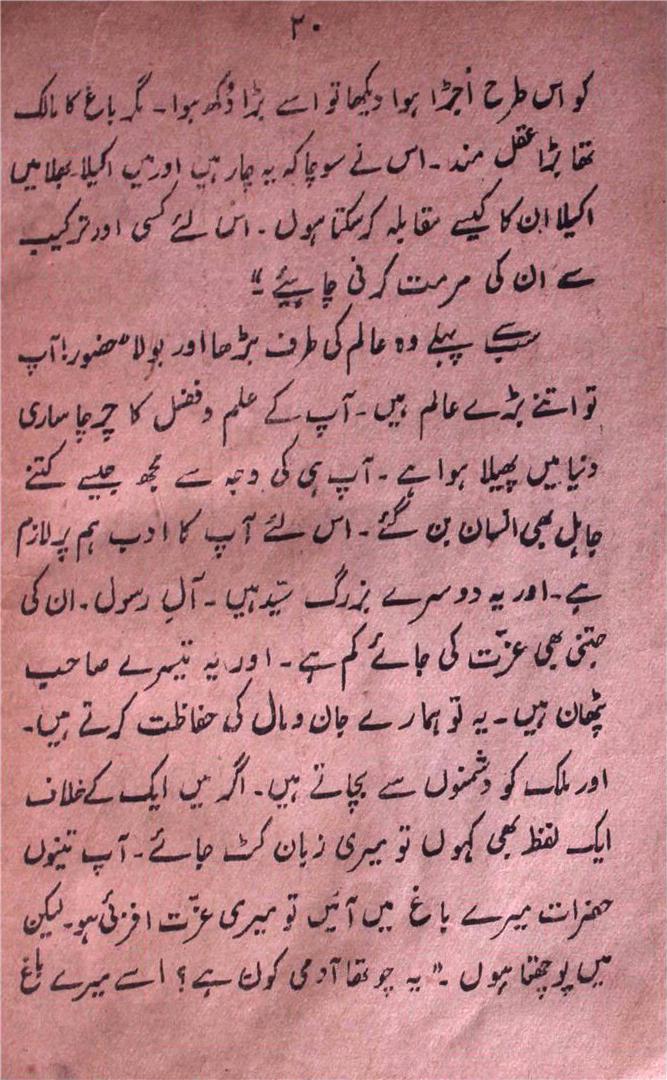 ۲۰
کو اس طرح اُجڑا ہوا دیکھا تو اسے بڑا دُکھ ہوا۔ مگر باغ کا مالک
تھا بڑا عقل مند۔ اس نے سوچا کہ یہ چار ہیں اور میں اکیلا بھلا میں
اکیلا ان کا کیسے مقابلہ کر سکتا ہوں۔ اس لئے کسی اور ترکیب
سے ان کی مرمت کرنی چاہیئے۔"
سب پہلے وہ عالم کی طرف بڑھا اور بولا "حضور! آپ
تو اتنے بڑے عالم ہیں۔ آپ کے علم و فضل کا چرچا ساری
دنیا میں پھیلا ہوا ہے۔ آپ ہی کی وجہ سے مجھ جیسے کتنے
جاہل بھی انسان بن گئے۔ اس لئے آپ کا ادب ہم پر لازم
ہے۔ اور یہ دوسرے بزرگ سیّد ہیں۔ آلِ رسول۔ ان کی
جتنی بھی عزّت کی جائے کم ہے۔ اور یہ تیسرے صاحب
پٹھان ہیں۔ یہ تو ہمارے جان و مال کی حفاظت کرتے ہیں۔
اور ملک کو دشمنوں سے بچاتے ہیں۔ اگر میں ایک کے خلاف
ایک لفظ بھی کہوں تو میری زبان کٹ جائے۔ آپ تینوں
حضرات میرے باغ میں آئیں تو میری عزّت افزئی ہو۔ لیکن
میں پوچھتا ہوں۔ "یہ چوتھا آدمی کون ہے؟ اسے میرے باغ